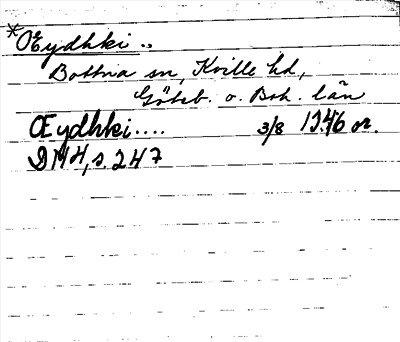 *Œydhki..
Bottna sn Kville hd,
Göteb. o. Boh. län
Œydhki.... 3/8 1346 or.
DMH, s. 247